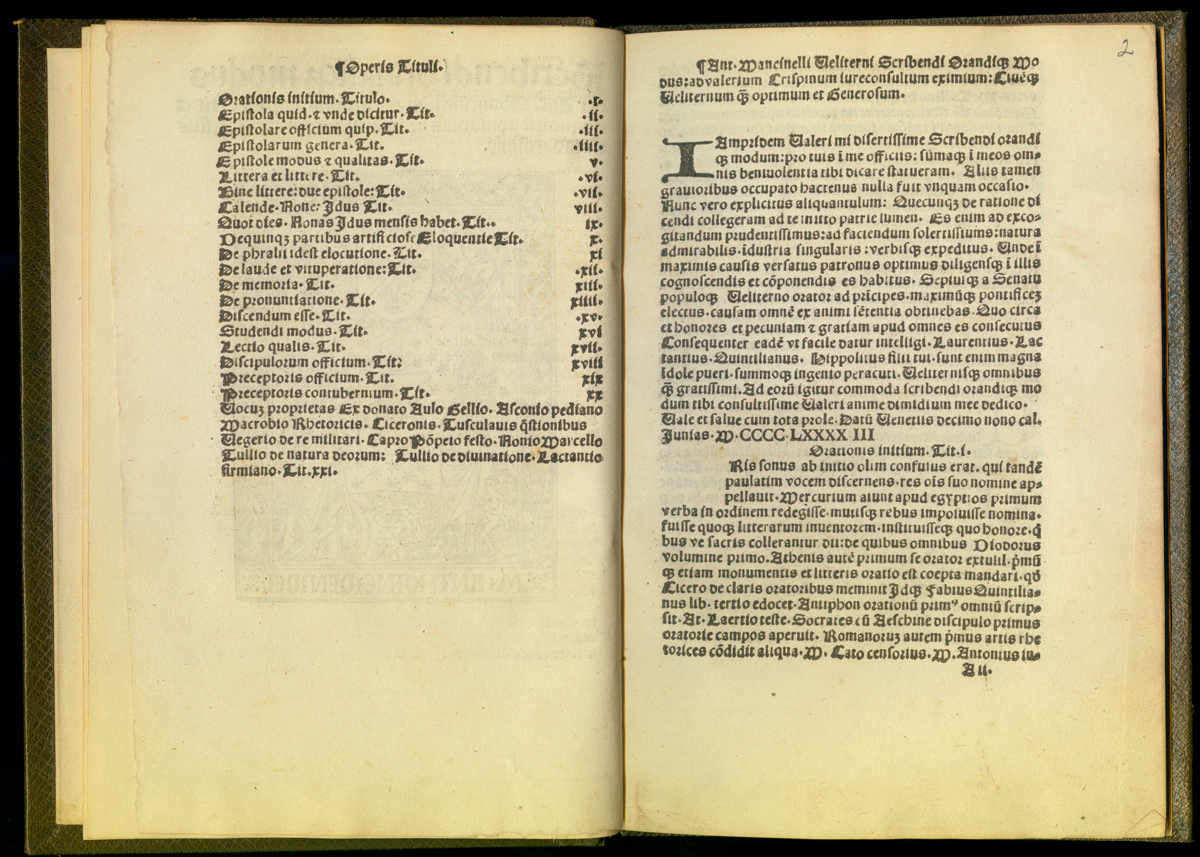 ¶Operis Tituli.
Orationis initium. Titulo. .i.
Epistola quid. ⁊ vnde dicitur. Tit. .ii.
Epistolare officium quip. Tit. .iii.
Epistolarum genera. Tit. .iiii.
Epistole modus ⁊ qualitas. Tit. v.
Littera et littere. Tit. .vi.
Bine littere: due epistole: Tit. .vii.
Calende. None: Idus Tit. viii.
Quot dies. Nonas Idus mensis habet. Tit.. ix.
De quinqꝫ partibus artificiose Eloquentie Tit. x.
De phrasi idest elocutione. Tit. xi
De laude et vituperatione: Tit. .xii.
De memoria. Tit. xiii.
De pronuntiatione. Tit. xiiii.
Discendum esse. Tit. .xv.
Studendi modus. Tit. xvi
Lectio qualis. Tit. xvii.
Discipulorum officium. Tit: xviii
Preceptoris officium. Tit. xix
Preceptoris contubernium. Tit. xx
Vocuꝫ proprietas Ex donato Aulo Gellio. Asconio pediano
Macrobio Rhetoricis. Ciceronis. Tusculauis q̄stionibus
Vegerio de re militari. Capro Pōpeio festo. Nonio Marcello
Tullio de natura deorum: Tullio de diuinatione. Lactantio
firmiano. Tit. xxi.
2
¶Ant. Mancinelli Veliterni Scribendi Orandiqꝫ Mo
dus: ad valerium Crispinum iureconsultum eximium: Ciuēqꝫ
Veliternum q̄ꝫ optimum et Generosum.
IAmpridem Valeri mi disertissime Scribendi orandi
qꝫ modum: pro tuis ī me officiis: sūmaqꝫ ī meos om-
nis beniuolentia tibi dicare statueram. Aliis tamen
grauioribus occupato hactenus nulla fuit vnquam occasio.
Nunc vero explicitus aliquantulum: Quecunqꝫ de ratione di
cendi collegeram ad te mitto patrie lumen. Es enim ad exco-
gitandum prudentissimus: ad faciendum solertissimus: natura
admirabilis. īdustria singularis: verbisqꝫ expeditus. Unde ī
maximis causis versatus patronus optimus diligensqꝫ ī illis
cognoscendis et cōponendis es habitus. Sepiusqꝫ a Senatu
populoqꝫ Veliterno orator ad prīcipes. maximūqꝫ pontificeꝫ
electus. causam omnē ex animi sētentia obtinebas. Quo circa
et honores et pecuniam ⁊ gratiam apud omnes es consecutus
Consequenter eadē vt facile datur intelligi. Laurentius. Lac
tantius. Quintilianus. Hippolitus filii tui. sunt enim magna
īdole pueri. summoqꝫ ingenio peracuti. Veliternisqꝫ omnibus
q̄ꝫ gratissimi. Ad eorū igitur commoda scribendi orandiqꝫ mo
dum tibi consultissime Valeri anime dimidium mee dedico.
Vale et salue cum tota prole. Datū Venetiis decimo nono cal.
Junias. M. CCCC. LXXXX III
Orationis initium. Tit. i.
Ris sonus ab initio olim confusus erat. qui tandē
paulatim vocem discernens. res oīs suo nomine ap-
pellauit. Mercurium aiunt apud egyptios primum
verba in ordinem redegisse. mutisqꝫ rebus imposuisse nomina.
fuisse quoqꝫ litterarum inuentorem. instituisseqꝫ quo honore. q̄
bus ve sacris collerantur dii: de quibus omnibus Diodorus
volumine primo. Athenis autē primum se orator extulil. p̄mū
qꝫ etiam monumentis et litteris oratio est coepta mandari. qď
Cicero de claris oratoribus meminit Idqꝫ Fabius Quintilia-
nus lib. tertio edocet. Antiphon orationū primꝰ omniū scrip-
sit. At. Laertio teste. Socrates cū Aeschine discipulo primus
oratorie campos aperuit. Romanoruꝫ autem p̄mus artis rhe
torices cōdidit aliqua. M. Cato censorius. M. Antonius iu-
A ii.